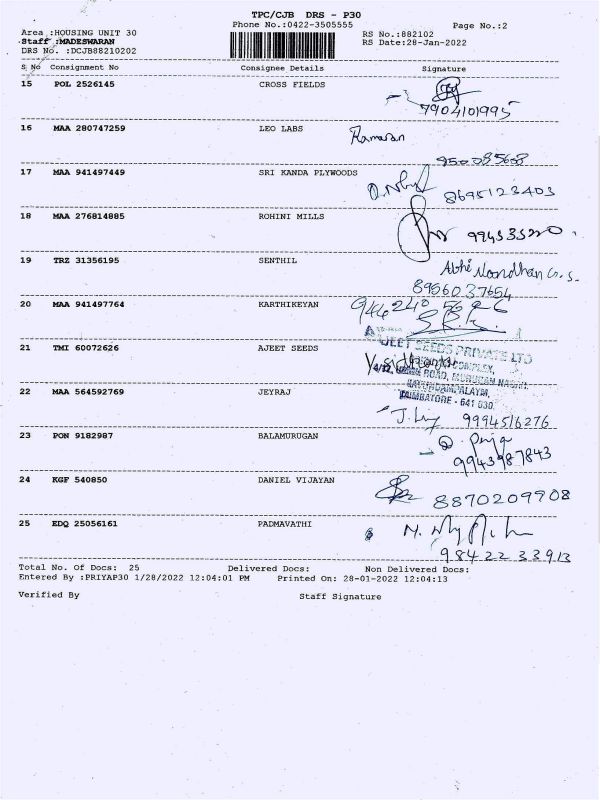 TPC/CJB DRS - P30
Phone No.:0422-3505555 Page No.:2
Area :HOUSING UNIT 30 RS No.:882102
Staff :MADESWARAN RS Date:28-Jan-2022
DRS No. :DCJB88210202
S No Consignment No Consignee Details Signature
15 POL 2526145 CROSS FIELDS
7904101995
16 MAA 280747259 LEO LABS
17 MAA 941497449 SRI KANDA PLYWOODS
8695123403
18 MAA 276814885 ROHINI MILLS
19 TRZ 31356195 SENTHIL
8956037654
20 MAA 941497764 KARTHIKEYAN
21 TMI 60072626 AJEET SEEDS
JEET SEEDS PRIVATE LTD
COMPLEX,
ROAD, MURUGAN NAGAR,
COIMBATORE - 641 030.
22 MAA 564592769 JEYRAJ
9994516276
23 PON 9182987 BALAMURUGAN
9943987843
24 KGF 540850 DANIEL VIJAYAN
8870209908
25 EDQ 25056161 PADMAVATHI
9842233913
Total No. Of Docs: 25 Delivered Docs: Non Delivered Docs:
Entered By :PRIYAP30 1/28/2022 12:04:01 PM Printed On: 28-01-2022 12:04:13
Verified By Staff Signature